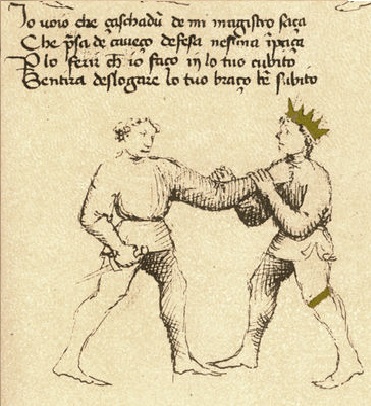 Io uoio che çaschadū de mi magistro saça
Che p̃sa de çaueço defesa nesuna īpaça
P lo ferir ch̄ io faço in lo tuo cubito
Sentira deslogare lo tuo braço bē subito